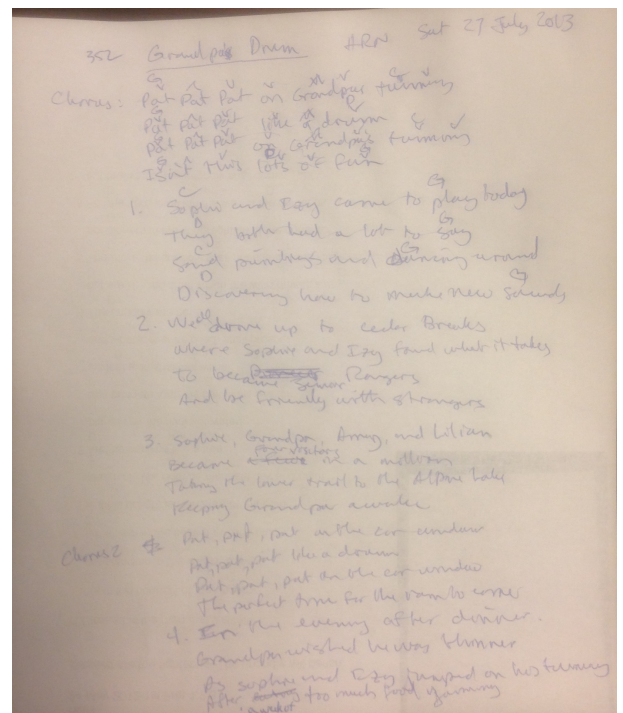 352 Grandpa's Drum ARN Sat 27 July 2013
G C G
Chorus: Pat Pat Pat on Grandpas tummy
Pat Pat Pat like a drum
Pat Pat Pat on Grandpa's tummy
Isn't this lots of fun
C G
1. Sophie and Izzy came to play today
D G
They both had a lot to say
C G
Sand paintings and dancing around
D G
Discovering how to make new sounds
2. We all drove up to Cedar Breaks
where Sophie and Izzy found what it takes
To become Junior Rangers
And be friendly with strangers
3. Sophie, Grandpa, Amy, and Lilian
Became four visitors in a million
Taking the lower trail to the Alpine Lake
Keeping Grandpa awake
Chorus 2 Pat, pat, pat on the car window
Pat, pat, pat like a drum
Pat, pat, pat on the car window
The perfect time for the rain to come
4. In the evening after dinner.
Grandpa wished he was thinner
As Sophie and Izzy jumped on his tummy
After too much food yummy